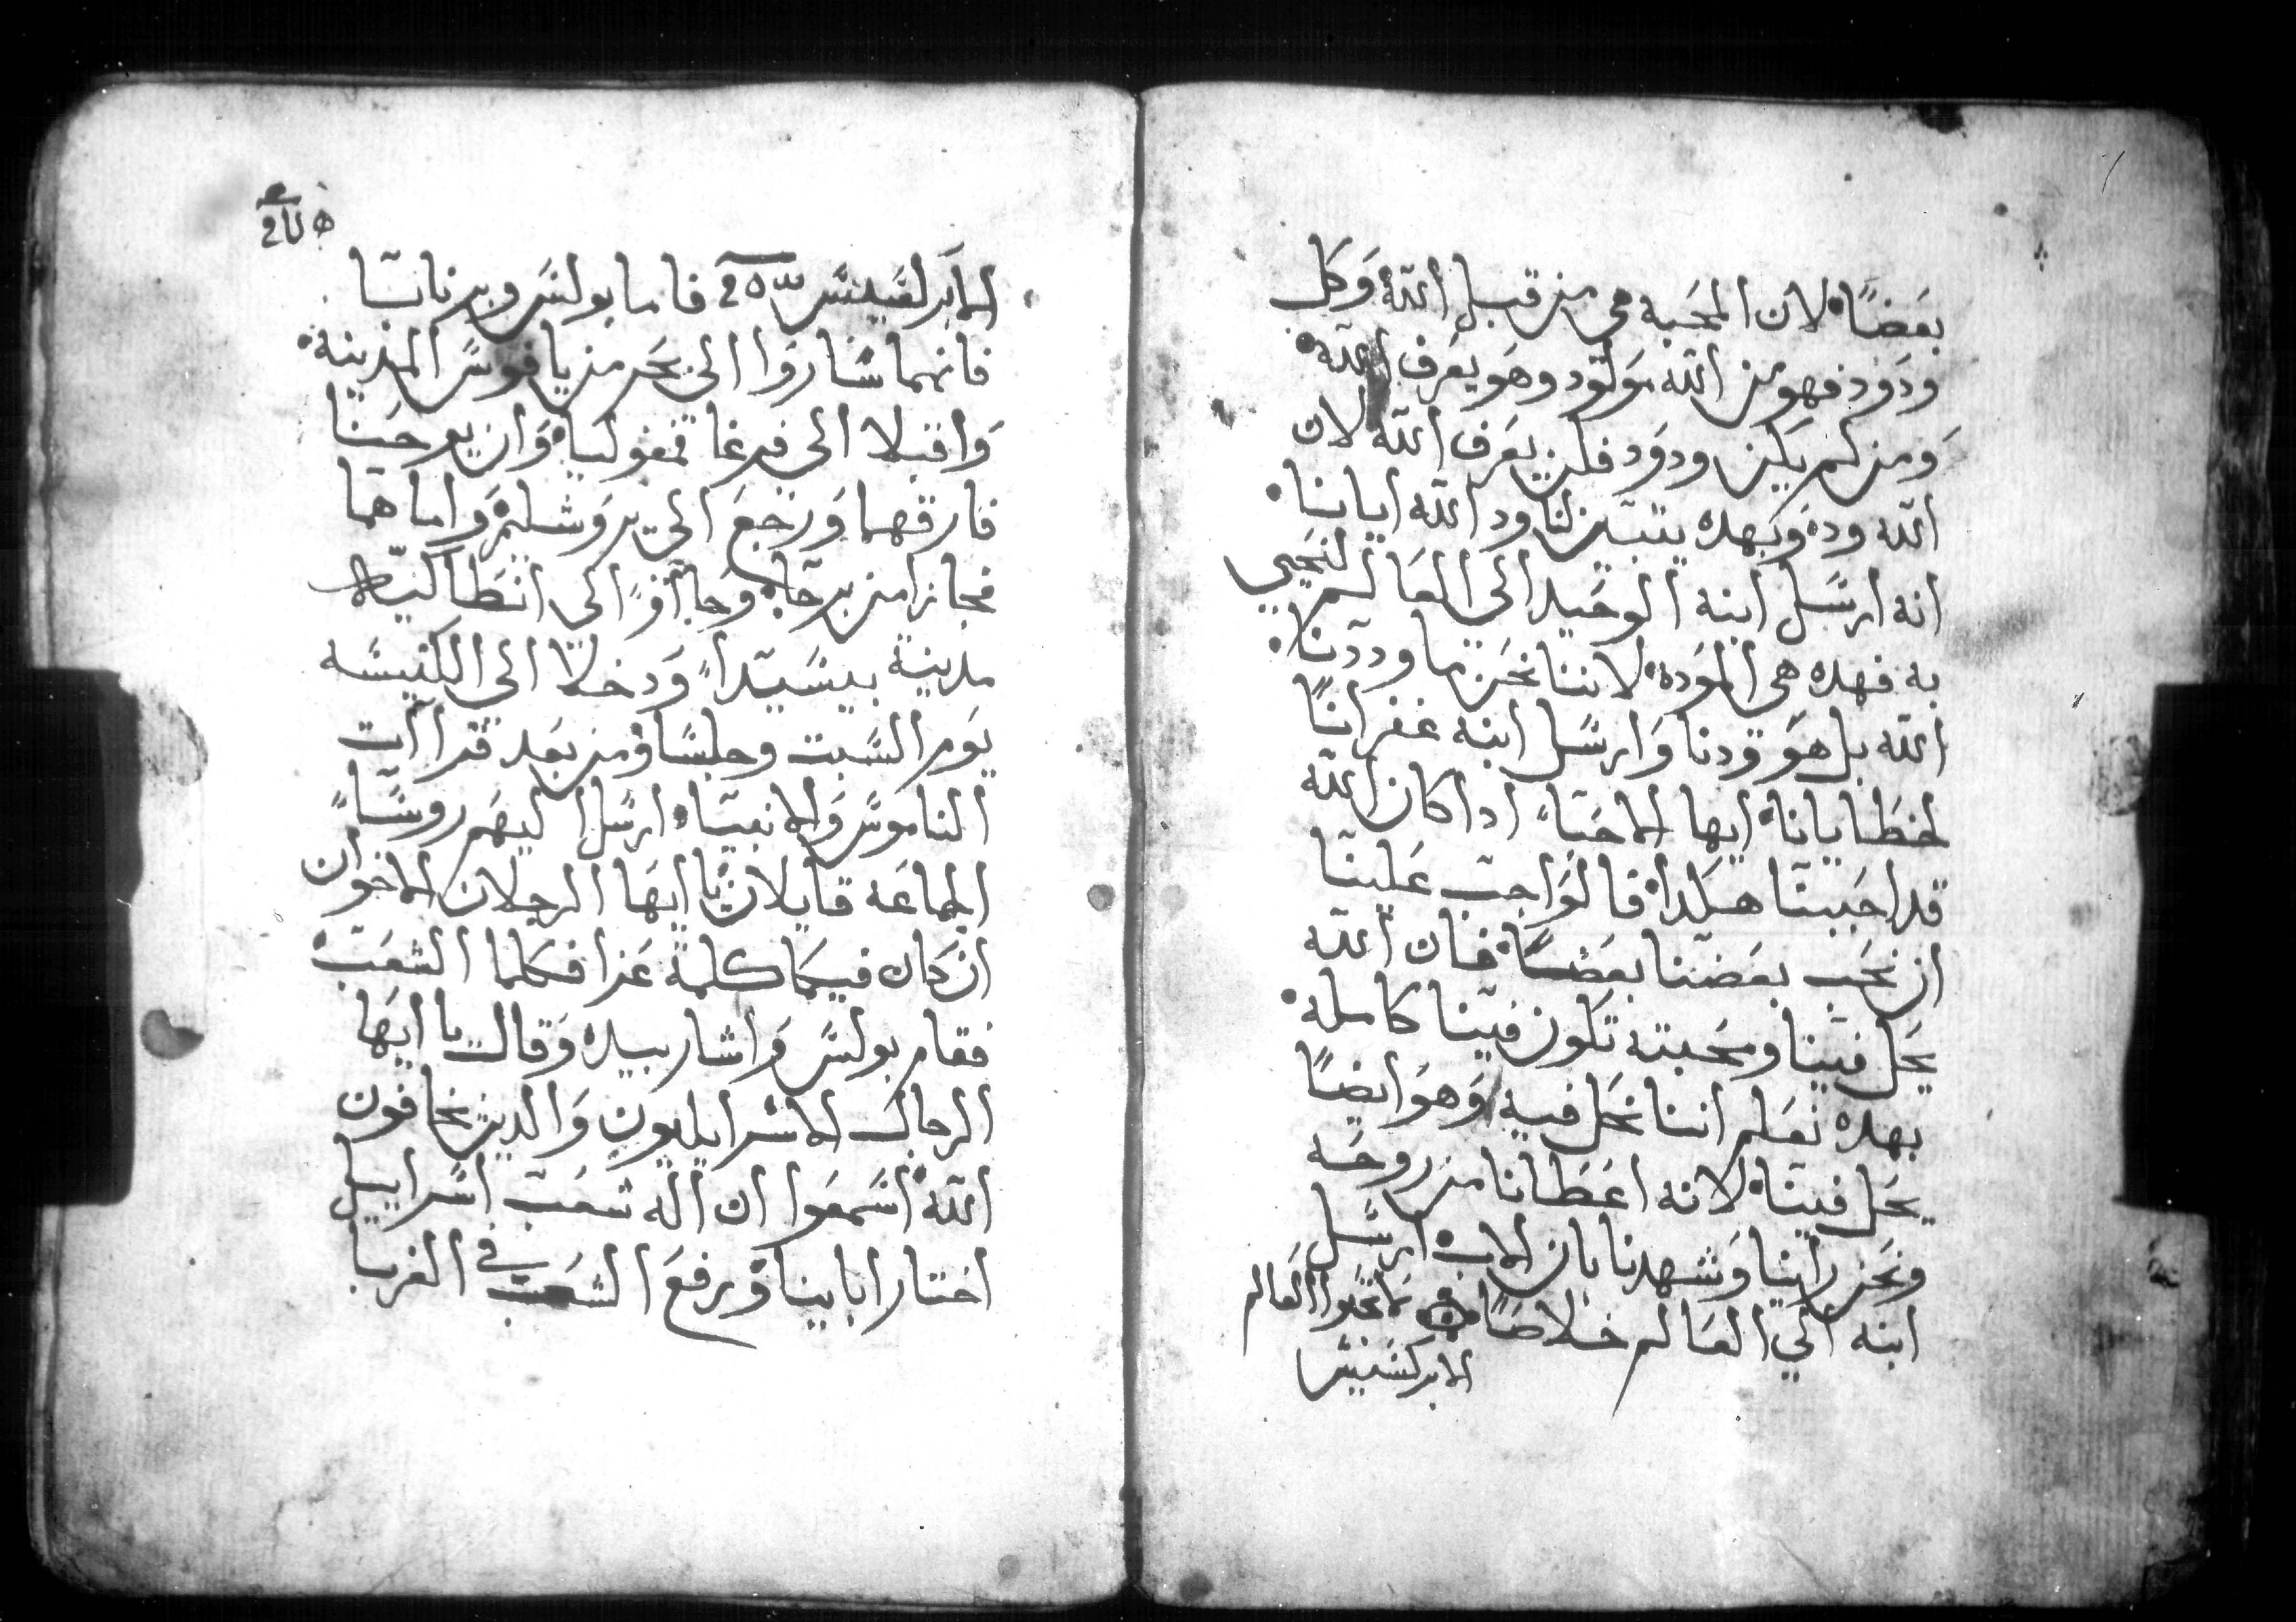 بعَضًا لان المحَبة هي من قبل الله وَكل
ودَوَد فهو من الله مَولَود وهَو يعَرف الله
وَمن لم يَكن ودوَد فلن يعَرف الله لان
الله وده وَبهده يتبَين لنا ود الله ايانا
انه ارسَل ابنه الوحَيد الى العَالم لنحَيي
به فهده هي الموَده لاننا نحَن ما وددنا
الله بل هَو ودنا وَارسَل ابنه غفرانًا
لخطَايانا ايها الاحبَا ادا كان الله
قد احَببنا هكدا فالوَاجب عَلينا
ان نحَب بعَضنا بعَضًا فان الله
يحَل فينا ومحَبته تكون فينا كامله
بهده نعَلم اننا نحَل فيه وَهوَ ايضًا
يحَل فينا لانه اعَطَانا من روحَه
ونحَن راينا وَشهدنا بان الاب ارسَل
ابنه الي العَالم خلاصًا لا تحَبوا العَالم
الابركسَيسَ
الابركسَيسَ فاما بولسَ وبرنابا
فانهما سَاروَا الى بحَر من يافوسَ المدينة
وَاقبلا الى فرغا بمفوليا وَان يوحَنا
فارقهما وَرجَع الى يروَشليم وَاما هما
فجازا من برجَا وَجَاآوا الى انطَاكيه
مدينة بيسَيدا وَدخلا الى الكنيسَه
يوَم السَبت وجلسَا وَمن بعَد قراآت
الناموسَ وَالانبيا ارسَل اليهَم روسَا
الجماعَه قايلان يا ايهَا الرجلان الاخوان
ان كان فيكما كلمة عَزا فكلما الشعَب
فقام بولسَ وَاشار بيده وَقال يا ايهَا
الرجال الاسَراييليون وَالدين يخافون
الله اسَمعَوا ان اله شعَب اسَراييل
اختار اباينا وَرفعَ الشعَب في الغربا